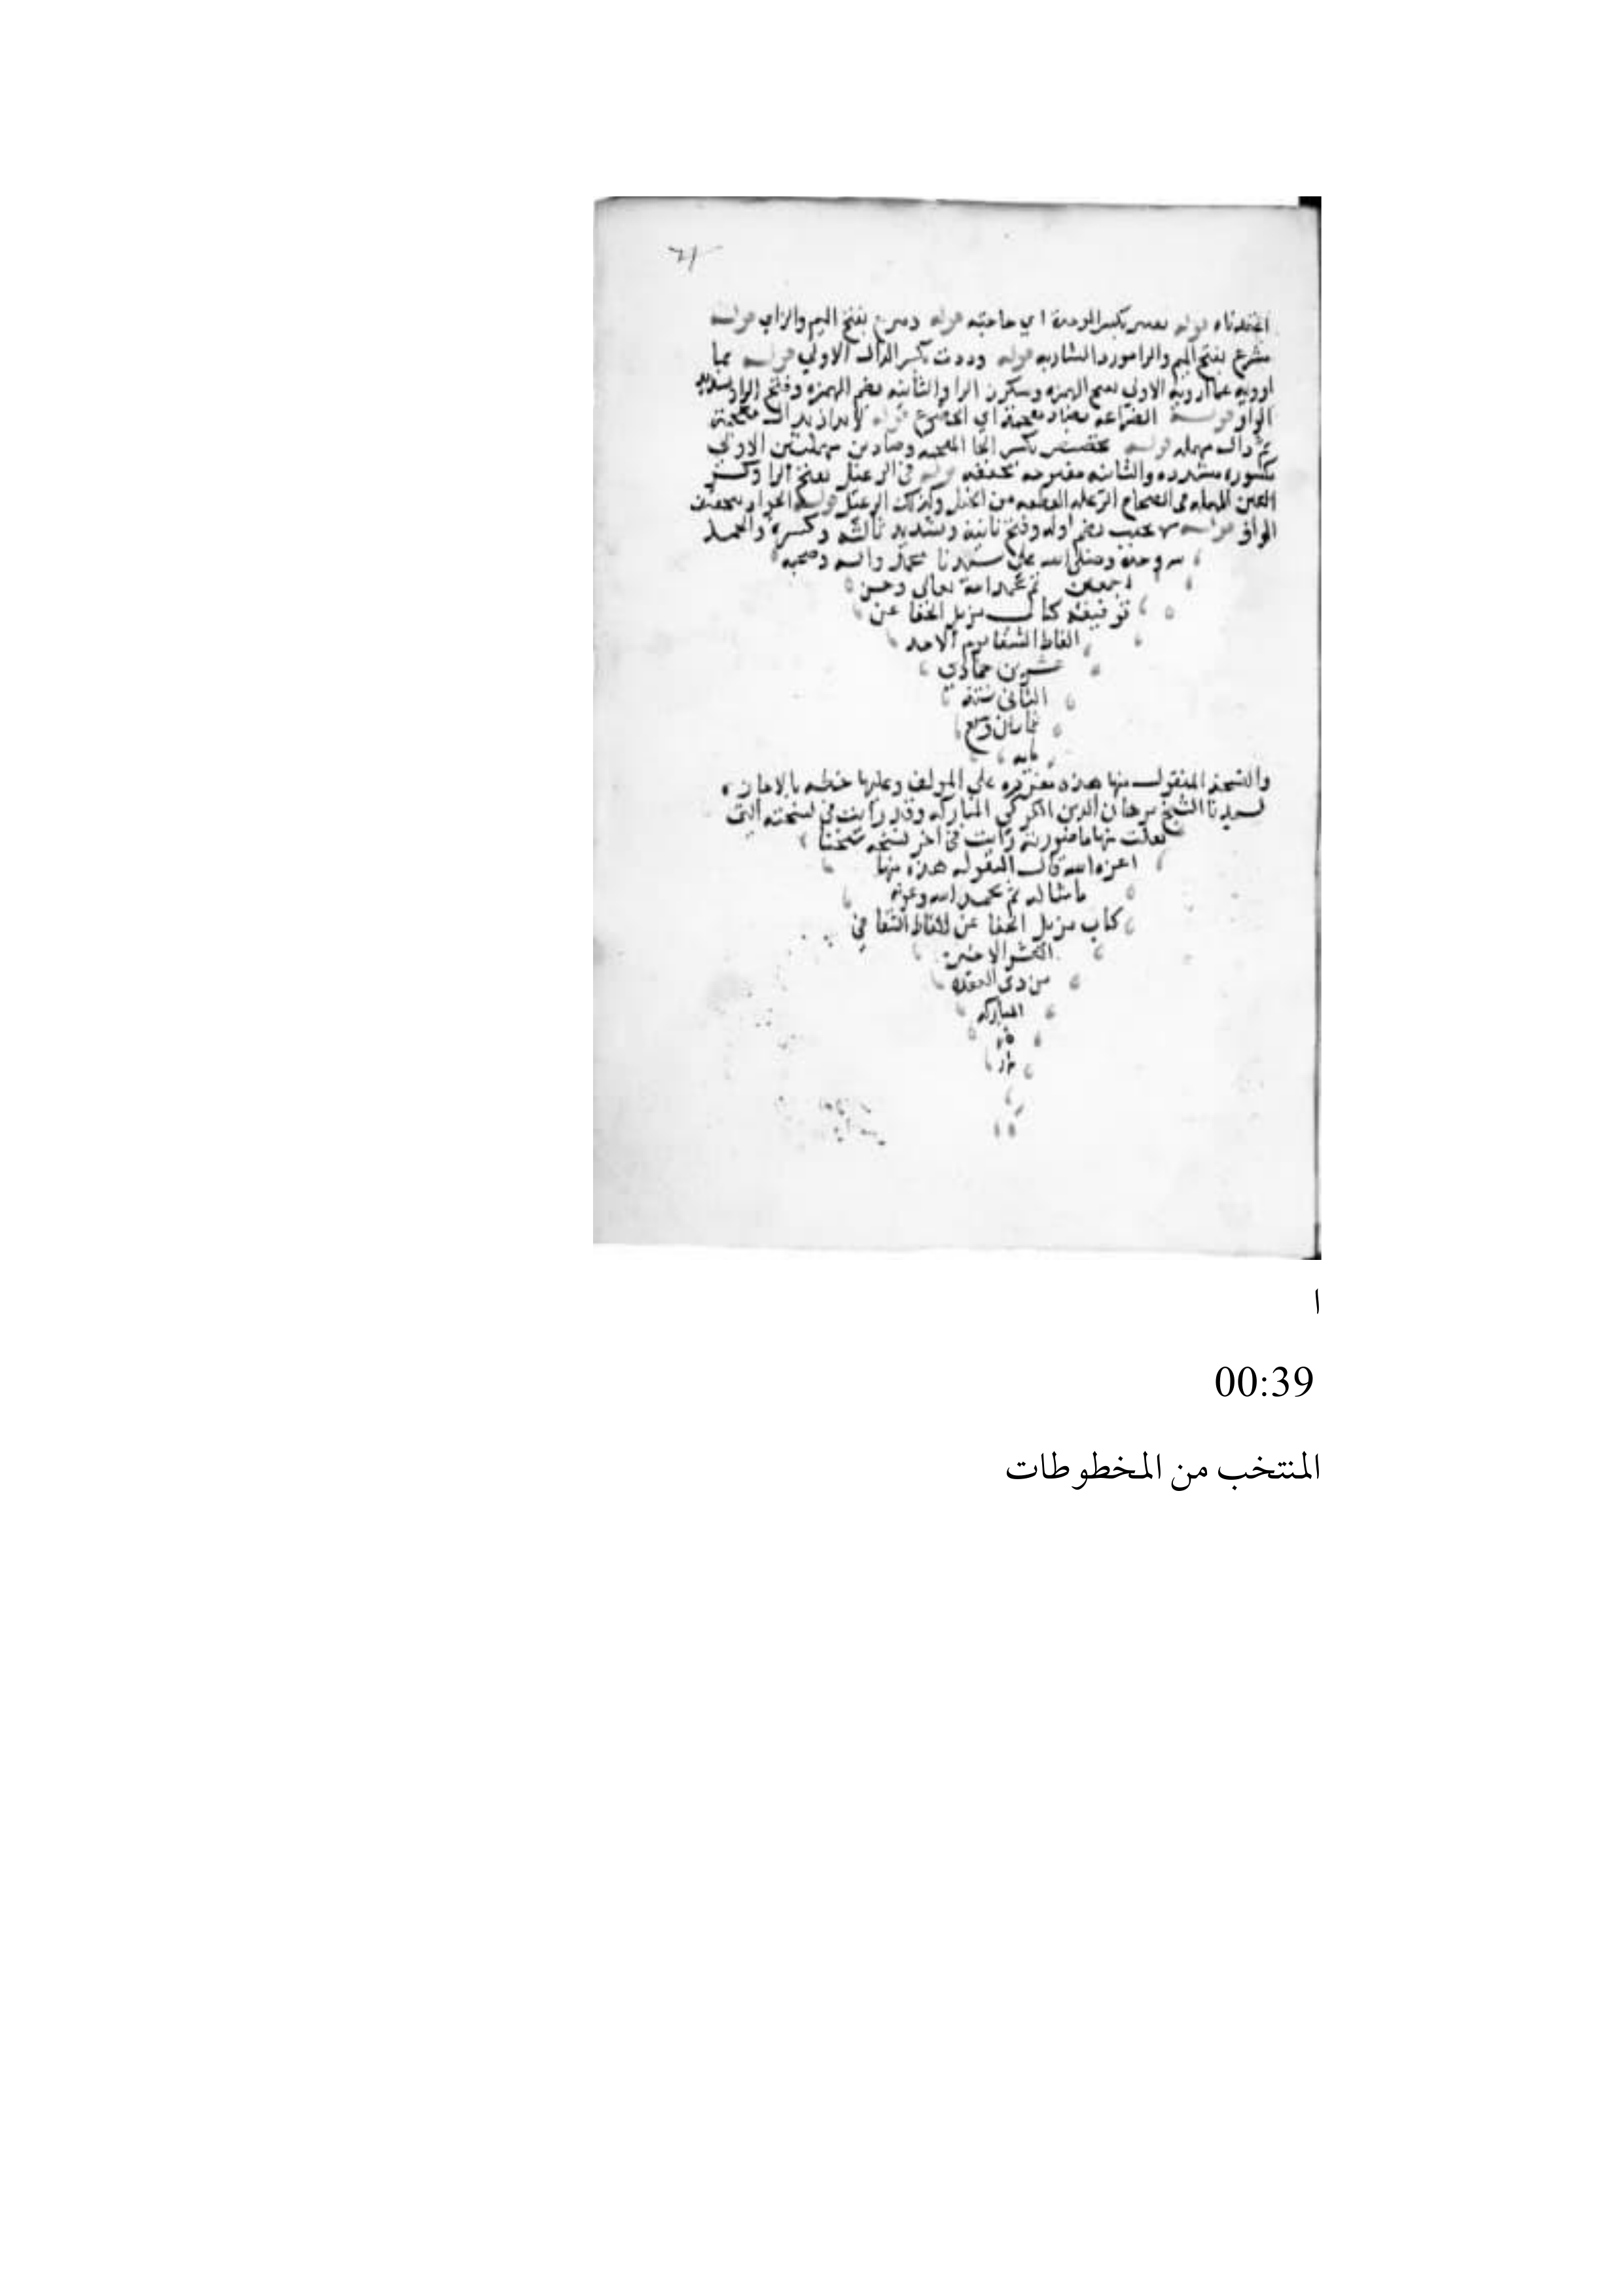 اخذناه قوله بكسر الموحدة اي حاجته قوله ومنزع بفتح الميم والزاي قولـه
مشرع بفتح الميم والرا مورد الشاربه قوله وددت بكسر الدال الاولي قولـه
الاولي بفتح الهمزه وسكون الرا والثانيه بضم الهمزه وفتح الرا وتشديد
الواو قولـه الضراعه بضاد معجمة اي الخضوع قوله بذال معجمة
ثم دال مهمله قولـه بكسر الخا المعجمه وصادين مهملتين الاولي
مكسوره مشدده والثانيه مفتوحه مخففه قوله في الرعيل بفتح الرا وكسر
العين المهمله في الصحاح الرعله القطعه من الخيل وكذلك الرعيل قوله الجواد بتخفيف
الواو قولـه بضم اوله وفتح ثانيه وتشديد ثالثه وكسره والحمد
لله وحده وصلى الله على سيدنا محمد واله وصحبه
اجمعين تم بحمد الله تعالى وحسن
توفيقه كتاب مزيل الخفا عن
الفاظ الشفا يوم الاحد
عشرين جمادي
الثاني سنة
ثمان
مايه
والنسخة المنقول منها هذه مقروه علي المولف وعليها خطه بالاجازه
لسيدنا الشيخ برهان الدين الكركي المباركه وقد رايت في نسخته التي
نقلت منها ما صورته رايت في اخر نسخه شيخنا
اعزه الله قال المنقوله هذه منها
ما مثاله تم بحمد الله وعونه
كتاب مزيل الخفا عن الفاظ الشفا في
العشر الاخير
من ذي القعده
المباركه
ا
00:39
المنتخب من المخطوطات